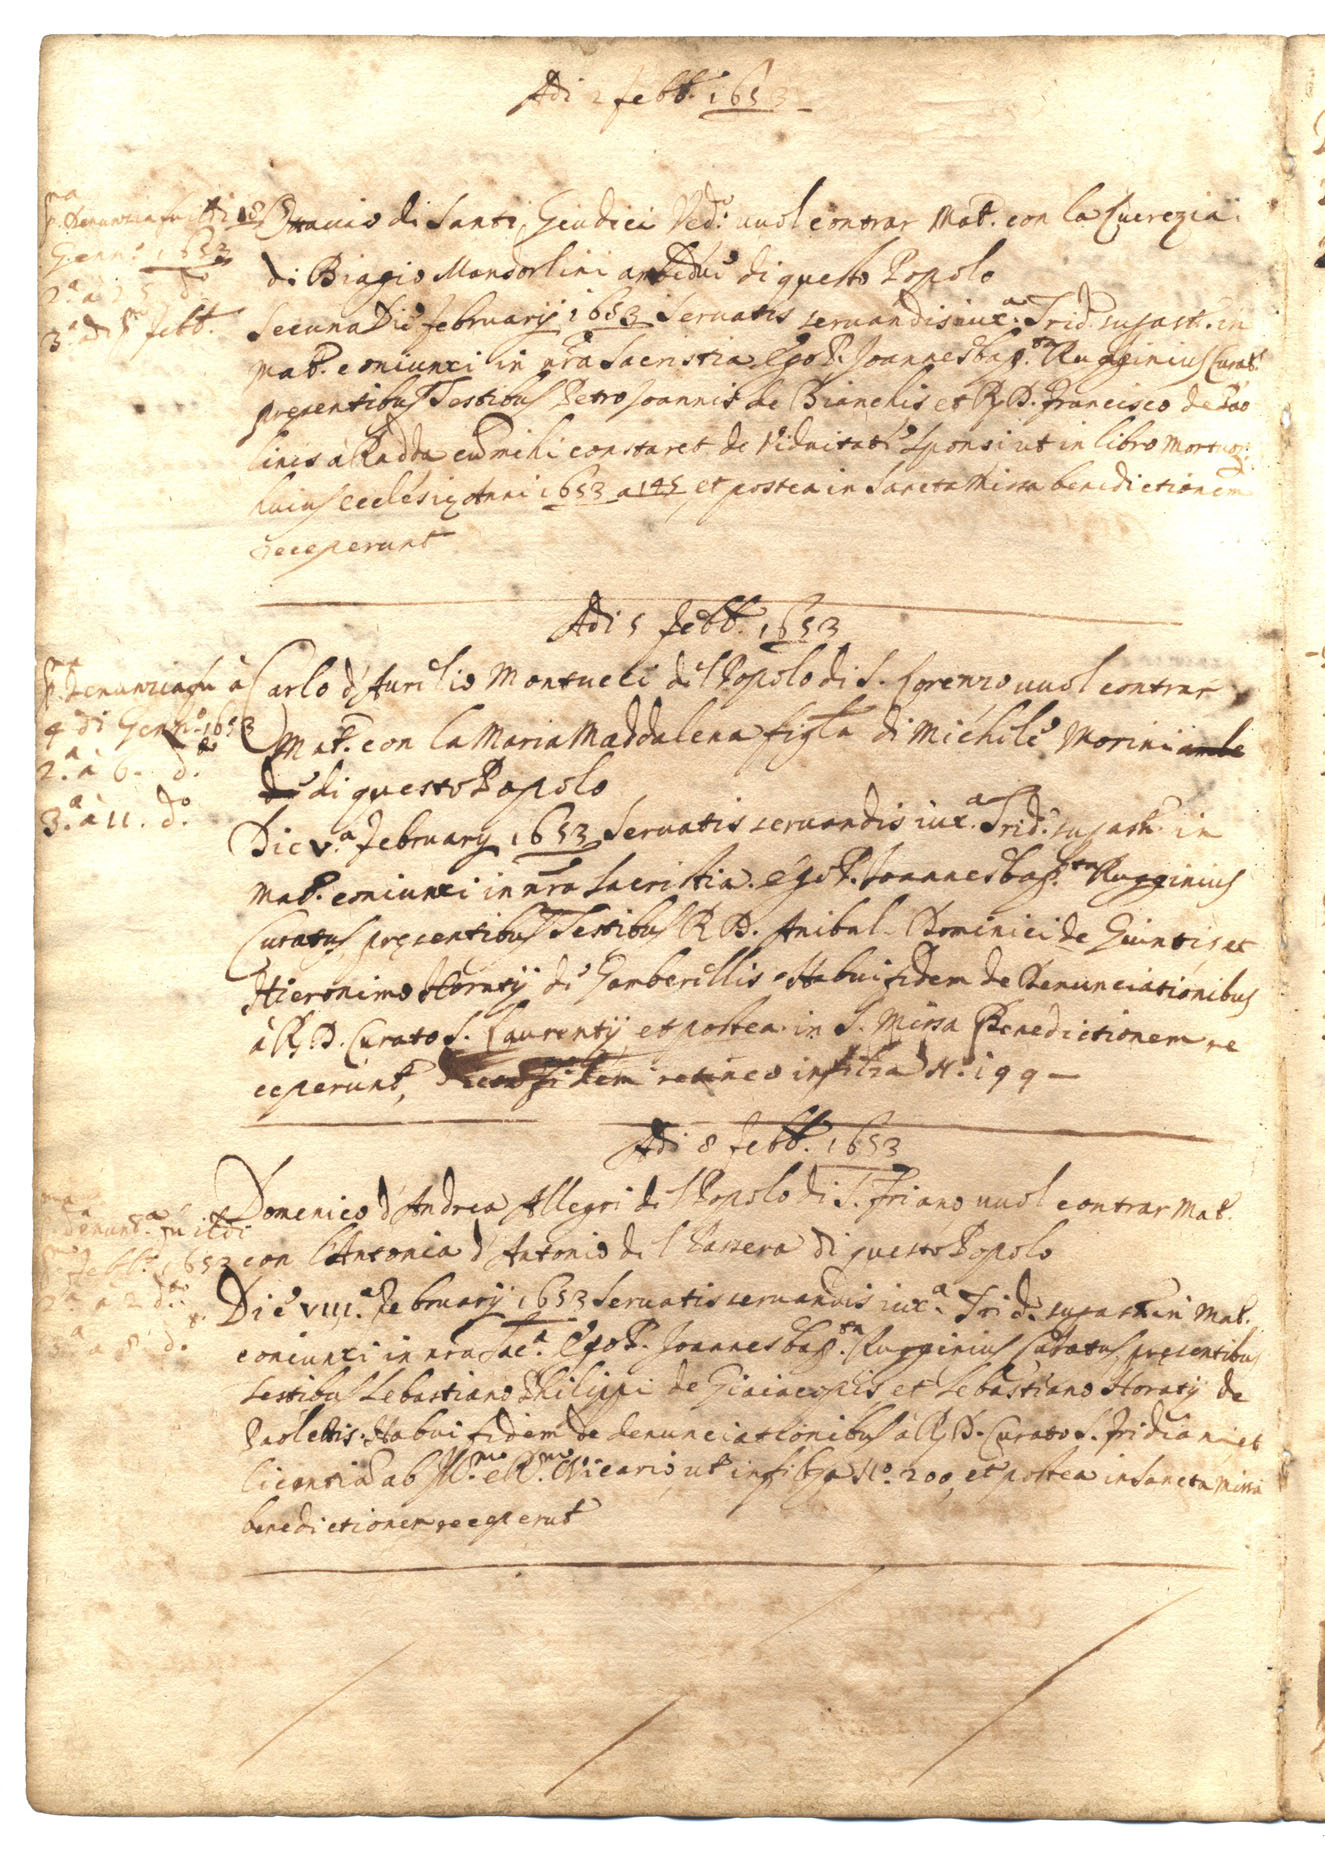 Adi 2 febb. 1653
p.ma Denunzia fu il dì 18
Genn.o 1653
2.a a 25 d.o
3.a a dì p.o febb.
Ottauio di Santi Giudici Ved.o uuol contrar Mat. con la Lucrezia
di Biagio Mandorlini ambedue di questo Popolo
Secunda Die february 1653 Seruatis seruandis iux.a Trid. sup.ast. in
Mat. coniunxi in nrã Sacristia Ego P. Joannes bap.ta Rugginius Curat.
presentibus Testibus Petro Joannis de Bianchis et R. D. Francisco de Pao
linis à Radda cũ mihi constaret de viduitate Sponsi ut in libro Mortuor.
huius Ecclesię Anni 1653 a 145, et postea in Sancta Missa benedictionem
receperunt
Adi 5 febb. 1653
p.ma Denunzia fu à
4 di Genn.o 1653
2.a à 6. d.o
3.a à 11. d.o
Carlo d'Aurelio Montucci del Popolo di S. Lorenzo uuol contrar
Mat. con la Maria Maddalena figla di Michele Morini ambe
due di questo Popolo
Die V.a february 1653 Seruatis seruandis iux.a Trid. sup.ast. in
Mat. coniunxi in nrã Sacristia. Ego P. Joannes bap.ta Rugginius
Curatus, pręsentibus Testibus R. D. Anibal. Dominici de Giuntis et
Hieronimo Horatij de Gamberellis. Habui fidem de Denunciationibus
à R. D. Curato S. Laurentij, et postea in S. Missa Benedictionem re
ceperunt, fidem retineo in filza N.o 199 —
Adi 8 febb. 1653
p.ma denunt.a fu il di
p.o febb. 1653
2.a a 2 d.o
3.a a 8 d.o
Domenico d'Andrea Allegri del Popolo di S. Friano uuol contrar Mat.
con l'Antonia d'Antonio del Passera di questo Popolo
Die VIII.a february 1653 Seruatis seruandis iux.a Trid. sup.ast. in Mat.
coniunxi in nrã Sac.a Ego P. Joannes bap.ta Rugginius Curatus, pręsentibus
testibus Sebastiano Philippi de Giaiacopis et Sebastiano Horatij de
Paolettis. Habui fidem de denunciationibus à R. D. Curato S. Fridiani et
licentiã ab Ill.mo e R.mo Vicario, ut in filza N.o 200, et postea in Sancta Missa
benedictionem receperũt